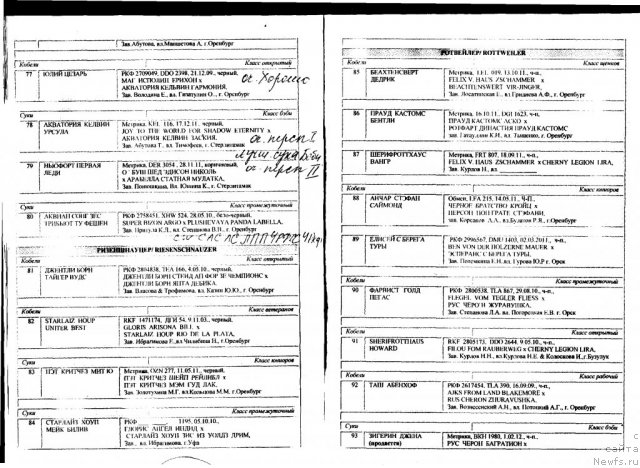 Зав. Абутова, вл. Маншетова А., г. Оренбург
Кобели Класс открытый
77 ЮЛИЙ ЦЕЗАРЬ РКФ 2709049, DDO 2398, 21.12.09., черный,
МАГ ИСТЮЗИП ЕРИХОН x
АКВАТОРИЯ КЕЛВИН ГАРМОНИЯ.
Зав. Володина Е., вл. Гизатулин О., г. Оренбург
ог. Хорошо
Суки Класс бэби
78 АКВАТОРИЯ КЕЛВИН УРСУЛА Метрика, KEL 116, 17.12.11., черный,
JOY TO THE WORLD FOR SHADOW ETERNITY x
АКВАТОРИЯ КЕЛВИН
Зав. Абутова Т., вл. Тимофеев, г. Стерлитамак
оч. персп I
луш сука бэби
79 НЬЮФОРТ ПЕРВАЯ ЛЕДИ Метрика, DER 3054, 28.11.11, коричневый,
О`БУШ ШЕД ЭДИСОН НИКОЛЬ
x АРАБЕЛЛА СТАТНАЯ МУЛАТКА.
Зав. Понюшкина, Вл. Юнина К., г. Стерлитамак
оч. персп II
Суки Класс промежуточный
80 РКФ 2758451, XHW 524, 28.05.10., бело-черный,
SUPER BUYON ARGO x PLUSHEVAYA PANDA LABELLA.
Зав. Вл. Степанова В.Н., г. Оренбург
РИЗЕНШНАУЦЕР/ RIESENSCHNAUZER
Кобели Класс открытый
81 ДЖЕНТЛИ БОРН ТАЙГЕР ВУДС РКФ 2804838, TEA 166, 4.05.10., черный,
ДЖЕНТЛИ БОРН СТЕНД АП ФОР ЗЕ ЧЕМПИОНС x
ДЖЕНТЛИ БОРН ЯПТА ДЕБИКА.
Зав. Власова & Трофимова, вл. Качин Ю.Ю., г. Оренбург
Кобели Класс ветеранов
82 STARLAIZ HOUP UNITER BEST RKF 1471174, ДГИ 54, 9.11.03., черный,
GLORIS ARISONA BILL x
STARLAIZ HOUP RIO DE LA PLATA,
Зав. Ибрагимова Е., вл. Чилибева Н., г. Оренбург
Суки Класс юниоров
83 ПЭТ КРИТЧЕЗ МИТ Ю Метрика, OZN 277, 11.05.11., черный,
ПЭТ КРИТЧЕЗ ШЕЙП РЕЙНБОЛ x
ПЭТ КРИТЧЕЗ МЭМ ГУД ЛАК,
Зав. Золотухина М.Г. вл. Кольцова М.М. г. Оренбург
Суки Класс промежуточный
84 СТАРЛАЙЗ ХОУП МЕЙК БИЛИВ РКФ 1195, 05.10.10.,
ГЛОРИС АНГЕЛ x
СТАРЛАЙЗ ХОУП ТИС ИЗ УОЛДЗ ДРИМ,
Зав., вл. Ибрагимова, г. Уфа
РОТВЕЙЛЕР/ ROTTWEILER
Кобели Класс щенков
85 БЕАХТЕНСВЕРТ ДЕДРИК Метрика, 019, 13.10.11., ч-п.,
FELIX V. HAUS ZSCHAMMER x
BEACHTENSWERT VIR-JINGER,
Зав. Носатинская Е., вл. Гриднева А.Ф., г. Оренбург
86 ПРАУД КАСТОМС БЕНТЛИ Метрика, 16.10.11., DGI 1623, ч-п.,
ПРАУД КАСТОМС АСКО x
РОТФАРТ ДИНАСТИЯ ПРАУД КАСТОМС
зав. Гатауллин К.И., вл. Тащенко, г. Оренбург
87 ШЕРИФРОТТХАУС ВАНГР Метрика, FRT 807, 18.09.11, ч-п.,
FELIX V. HAUS ZSCHAMMER x CHERNY LEGION LIRA,
Зав. Курзев Н., вл.
Кобели Класс юниоров
88 АНЧАР СТЭФАН САЙМОНД Обмен, LFA 215, 14.05.11., Ч-П.,
ЧЕРНОЕ БРАТСТВО КРОЙЦ x
ПЕРСЕЙ ПОЙНТРАТЕ СТЭФАНИ,
зав. Корсаков А.А., вл. Буданов Р.Я., г. Оренбург
89 ЕЛИСЕЙ С БЕРЕГА ТУРЫ РКФ 2996567, DMU 1403, 02.03.2011., ч-п.,
BEN VON DER HOLZERNE MAUER x
ЭСПЕРАНС С БЕРЕГА ТУРЫ,
Зав. Потемкина Е.Н. вл. Гурова Ю.Р. г. Орск
Кобели Класс промежуточный
90 ФАРВИСТ ГОЛД ПЕГАС РКФ 2806538, TLA 867, 29.08.10., ч-п.,
FLEGEL VOM TEGLER FLIESS x
РУС ЧЕРОН ЖУРАВУШКА.
Зав. Степанкова Л.А. вл. Погорецкая Е.В. г. Орск
Кобели Класс открытый
91 SHERIFROTTHAUS HOWARD RKF 2805173, DDO 2644, 9.05.10., ч-п.,
FILOU FOM RAUBERWEG x CHERNY LEGION LIRA,
Зав. Курзев Н.Н., вл. Курзова Н.Е. & Колоскова И., г. Бузулук
Кобели Класс рабочий
92 ТАШ АБЕНХОФ РКФ 2617454, TLA 390, 16.09.09., ч-п.,
AJKS FROM LAND BLAKEMORE x
RUS CHERON ZHURAVUSHKA.
Зав. Вознесенский А.Н., вл. Потоцкий А.Г., г. Оренбург
Суки Класс бэби
93 ЗИГЕРИН ДЖЕНА (продается) Метрика, BKH 1980, 1.02.12., ч-п.,
РУС ЧЕРОН БАГРАТИОН x
с сайта
Newfs.ru